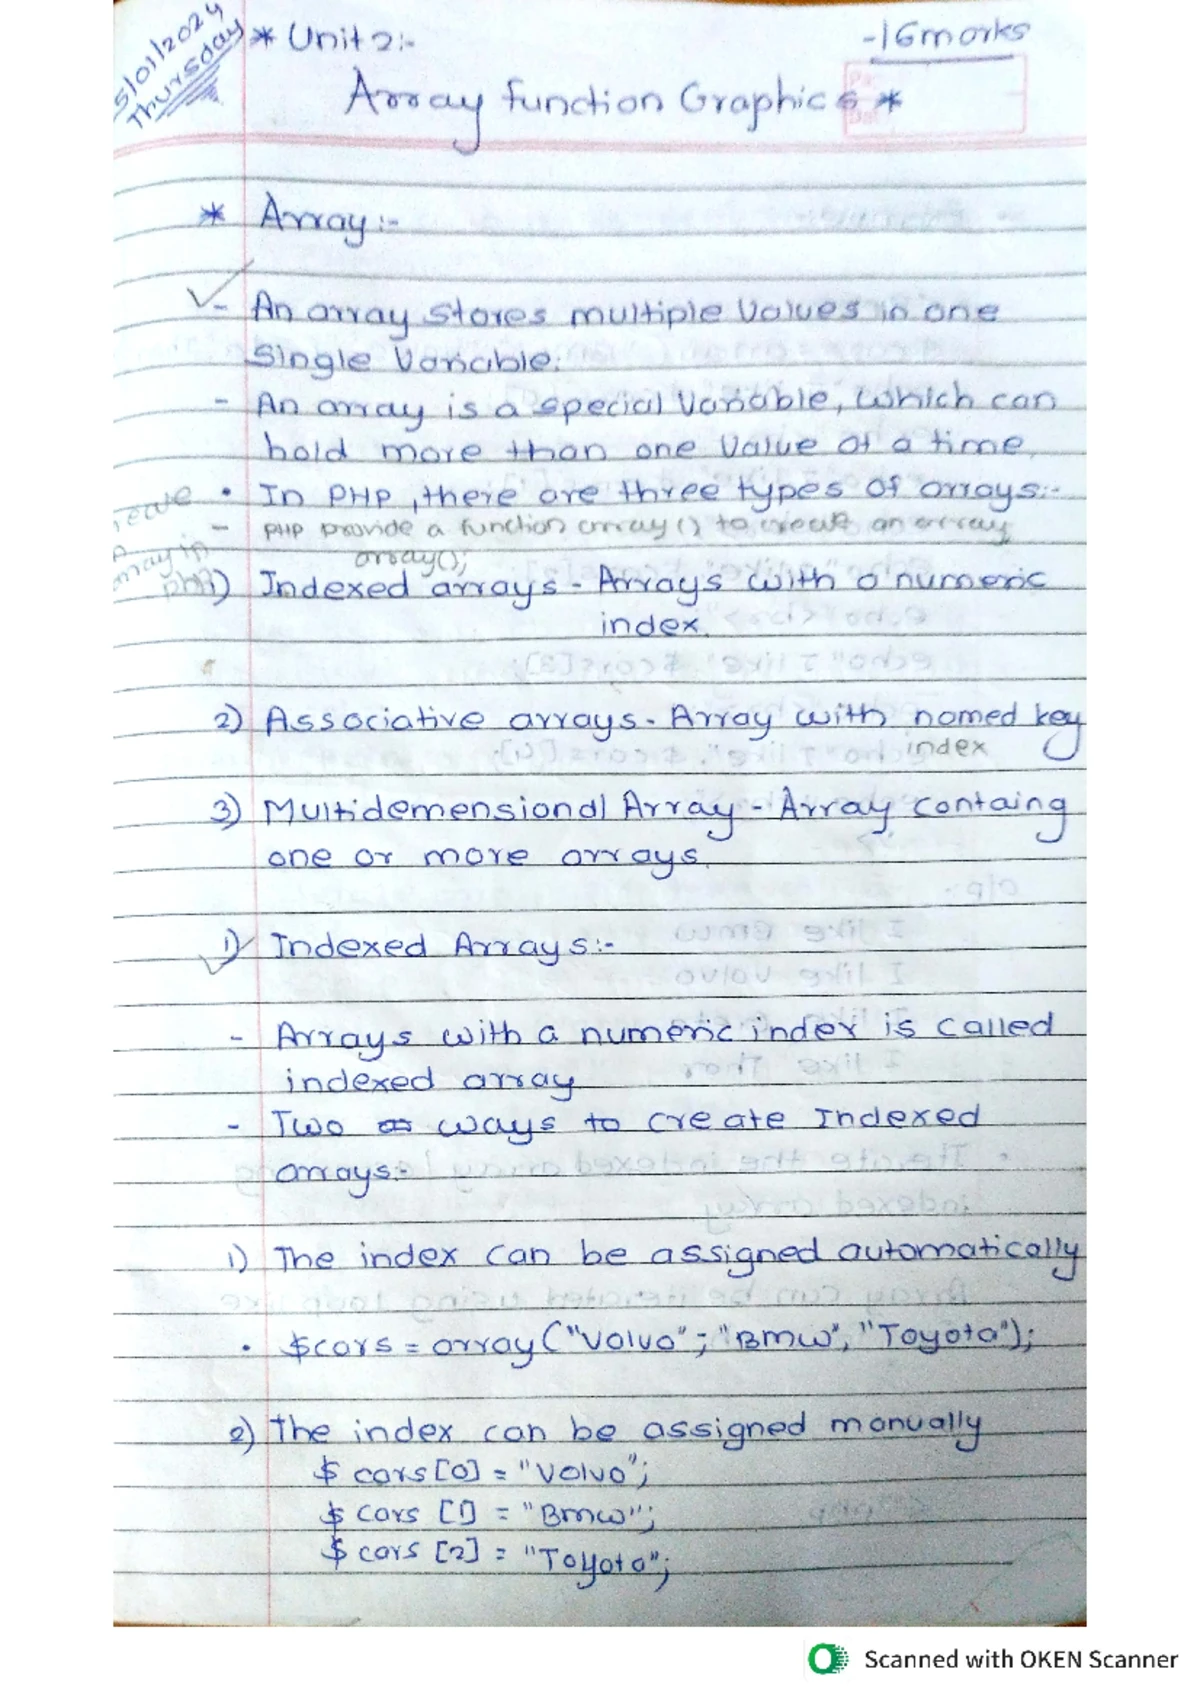 5/01/2024
Thursday
* Unit 2:-
-16 marks
Array function Graphics *
* Array :-
- An array stores multiple Values in one
Single Variable.
- An array is a special Variable, which can
hold more than one value at a time.
• In PHP, there are three types of arrays:-
- PHP provide a function array() to create an array
array();
1) Indexed arrays - Arrays with a numeric
index.
2) Associative arrays - Array with named key
index
3) Multidemensional Array - Array containg
one or more arrays.
1) Indexed Arrays:-
- Arrays with a numeric index is called
indexed array
- Two ways to create Indexed
arrays:-
1) The index can be assigned automatically
• $cars = array ("Volvo"; "Bmw", "Toyota");
2) The index can be assigned manually
$ cars [0] = "Volvo";
$ cars [1] = "Bmw";
$ cars [2] = "Toyota";
Scanned with OKEN Scanner